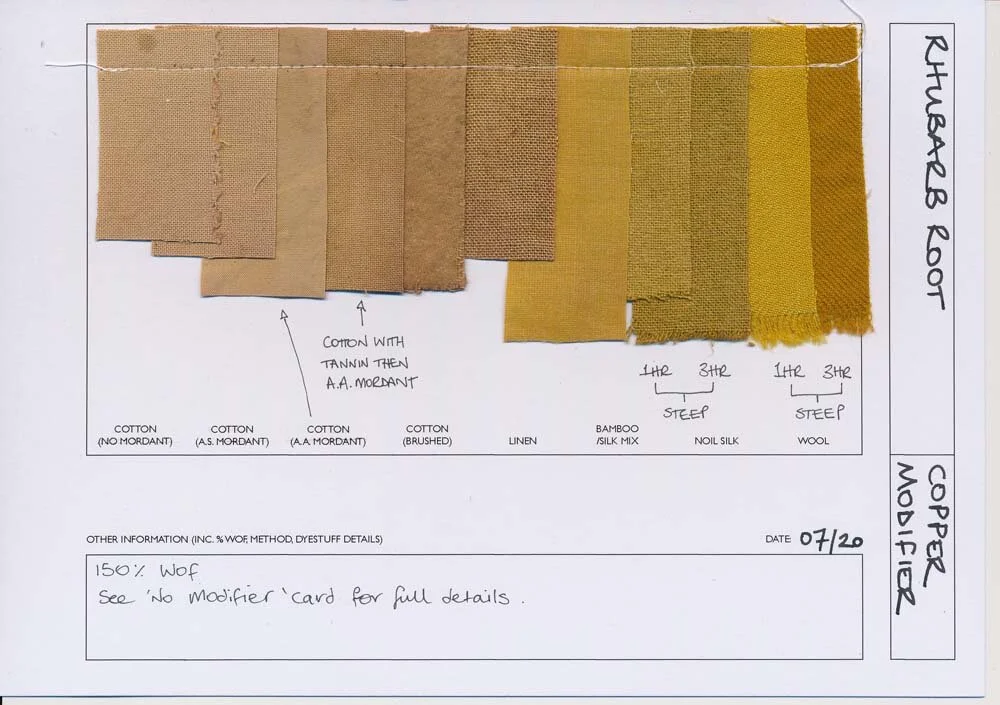 RHUBARB ROOT
COTTON WITH
TANNIN THEN
A.A. MORDANT
1HR 3HR
STEEP
1HR 3HR
STEEP
COTTON
(NO MORDANT)
COTTON
(A.S. MORDANT)
COTTON
(A.A. MORDANT)
COTTON
(BRUSHED)
LINEN
BAMBOO
/SILK MIX
NOIL SILK
WOOL
COPPER
MODIFIER
OTHER INFORMATION (INC. % WOF, METHOD, DYESTUFF DETAILS)
DATE 07/20
150% WOF
See 'No Modifier' card for full details.